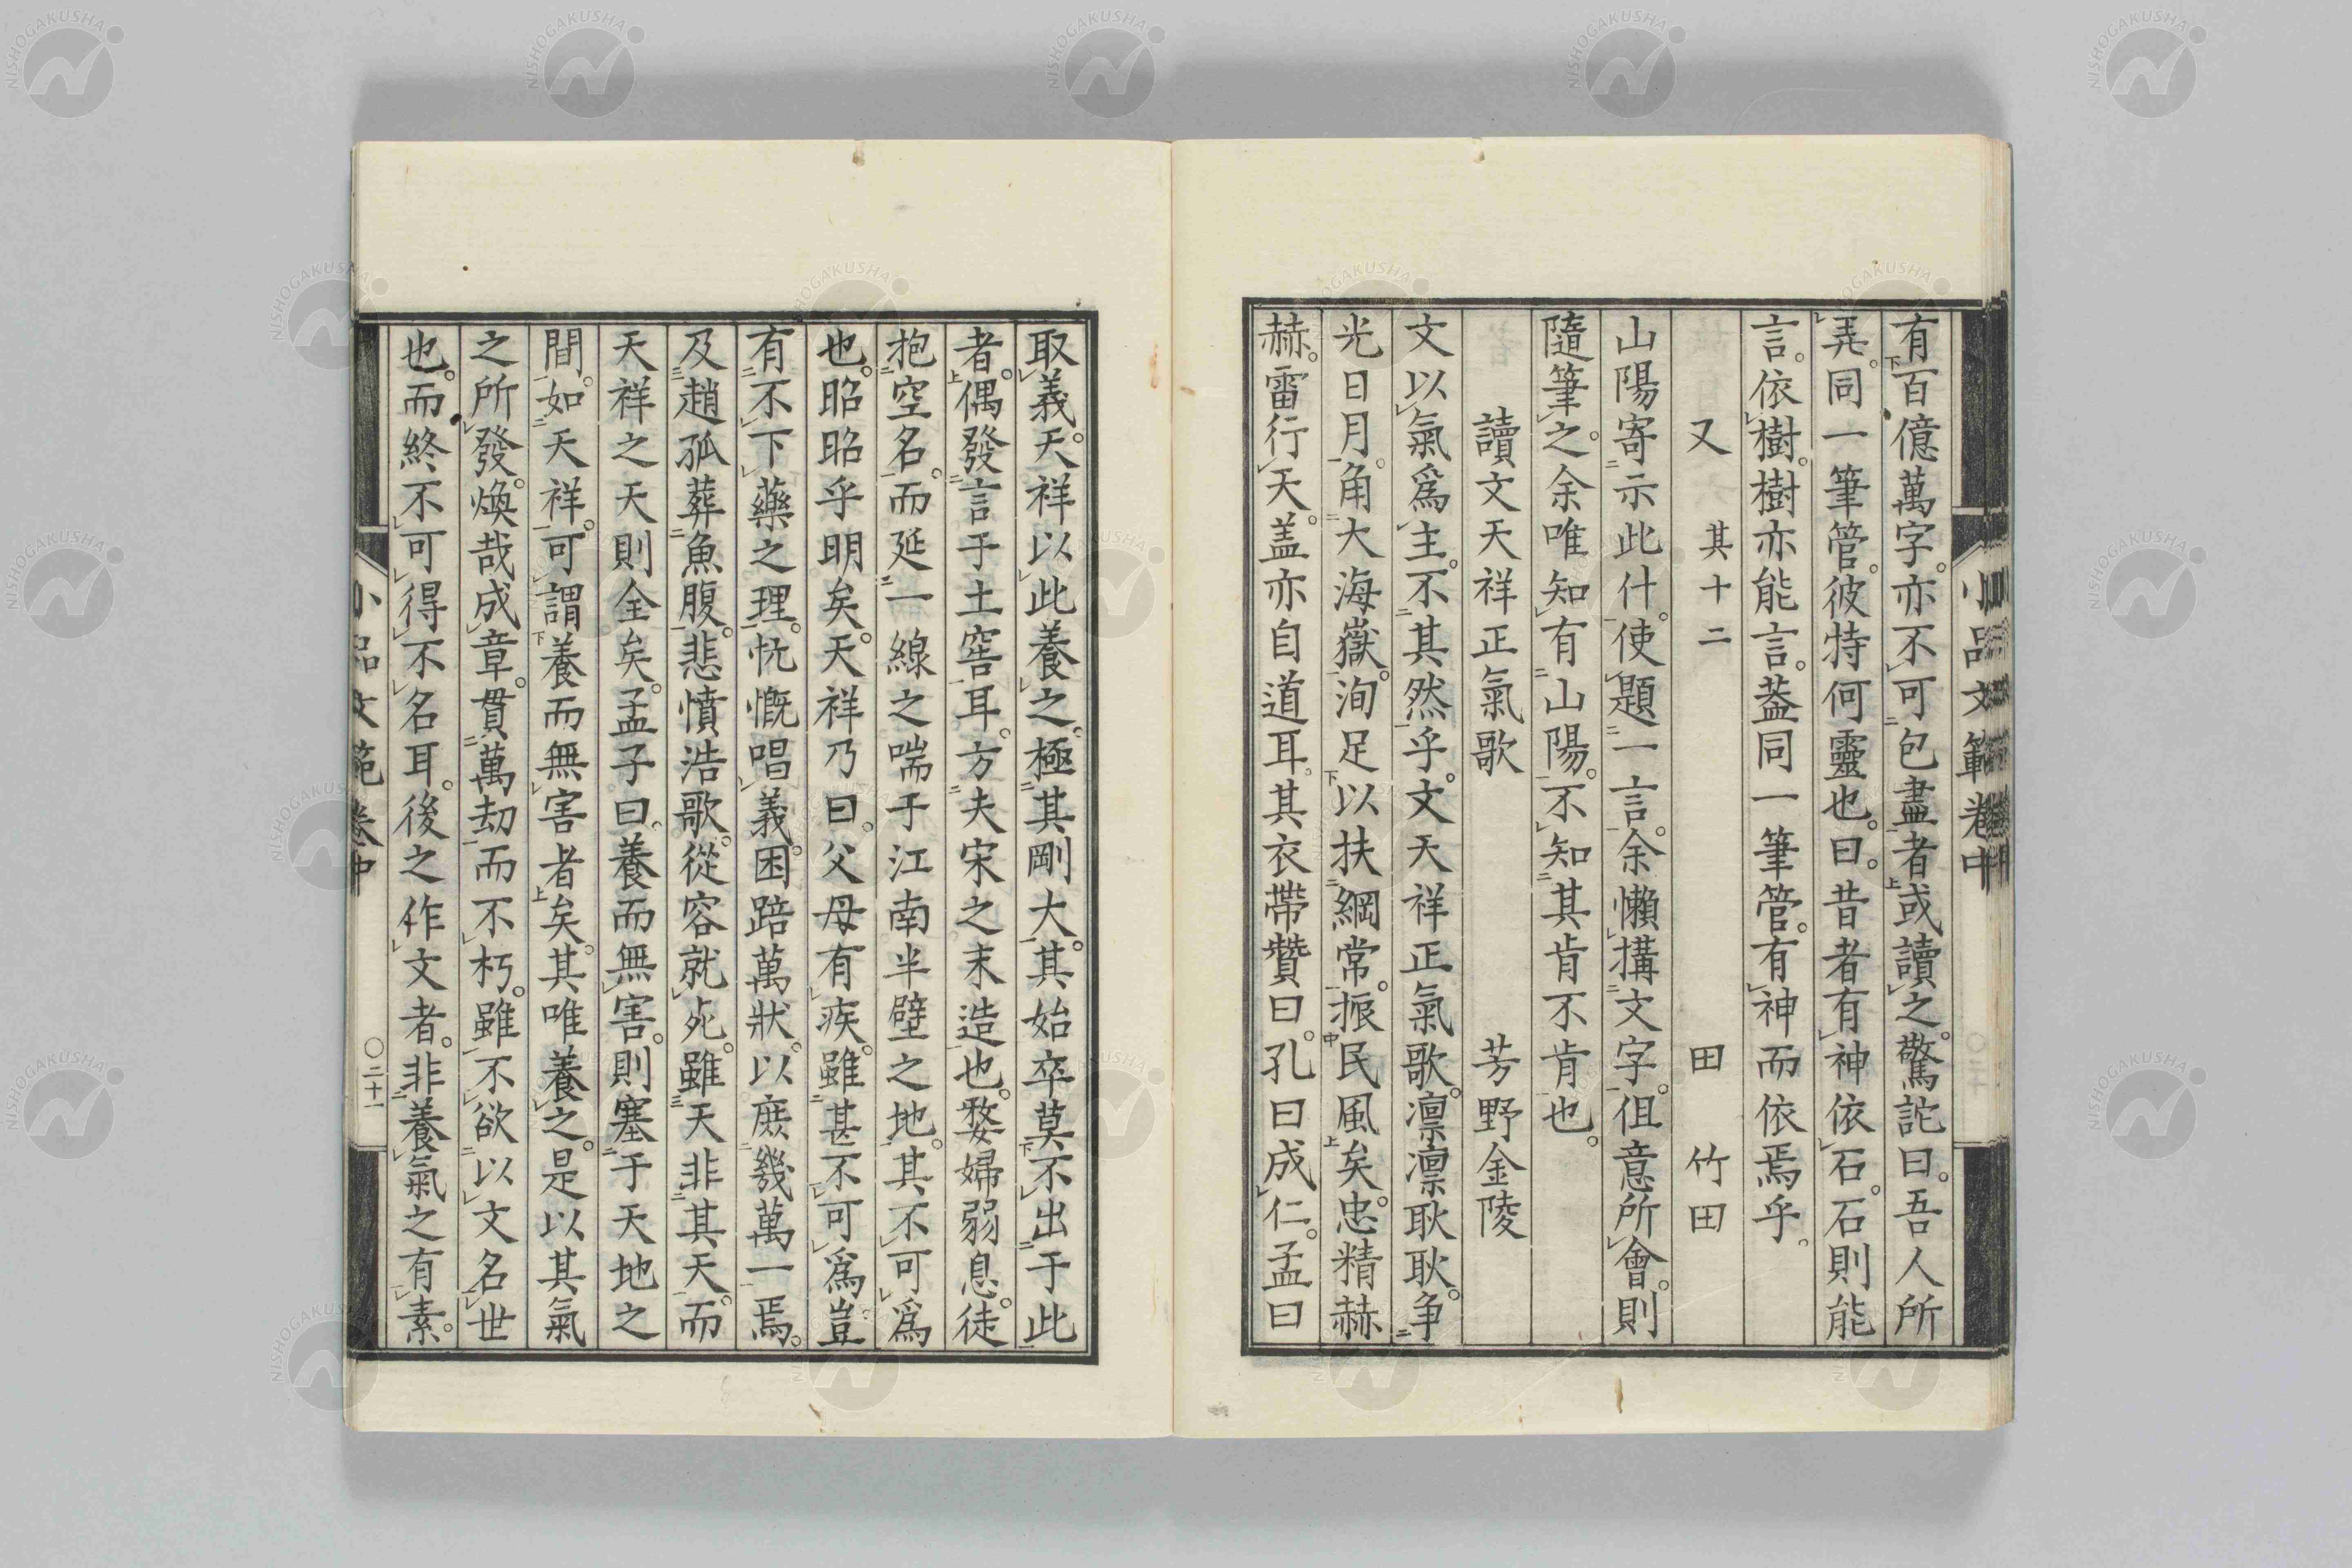 小品文範卷中
有百億萬字。亦不可包盡者。或讀之。驚詫曰。吾人所
弄。同一筆管。彼特何靈也。曰。昔者有神依石。石則能
言。依樹。樹亦能言。葢同一筆管。有神而依焉乎。
又 其十二 田 竹田
山陽寄示此什。使題一言。余懶搆文字。但意所會。則
隨筆之。余唯知有山陽。不知其肯不肯也。
讀文天祥正氣歌 芳野金陵
文以氣爲主。不其然乎。文天祥正氣歌。凛凛耿耿。争
光日月。角大海嶽。洵足以扶綱常。振民風矣。忠精赫
赫。雷行天。盖亦自道耳。其衣帶贊曰。孔曰成仁。孟曰
取義。天祥以此養之。極其剛大。其始卒莫不出于此
者。偶發言于土窖耳。方夫宋之末造也。嫠婦弱息。徒
抱空名。而延一線之喘于江南半壁之地。其不可爲
也。昭昭乎明矣。天祥乃曰。父母有疾。雖甚不可爲。豈
有不下藥之理。忼慨唱義。困踣萬狀。以庶幾萬一焉。
及趙孤葬魚腹。悲憤浩歌。從容就死。雖天非其天。而
天祥之天則全矣。孟子曰。養而無害。則塞于天地之
間。如天祥。可謂養而無害者矣。其唯養之。是以其氣
之所發。煥哉成章。貫萬劫而不朽。雖不欲以文名世
也。而終不可得不名耳。後之作文者。非養氣之有素。
小品文範卷中 〇二十一
NISHOGAKUSHA